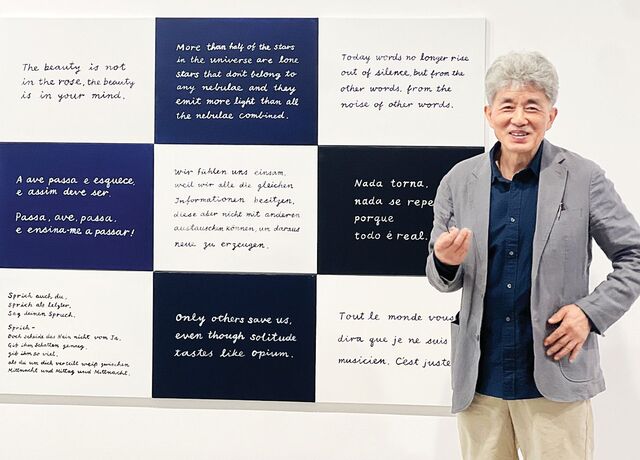 The beauty is not
in the rose, the beauty
is in your mind.
More than half of the stars
in the universe are lone
stars that don't belong to
any nebulae and they
emit more light than all
the nebulae combined.
Today words no longer rise
out of silence, but from the
other words, from the
noise of other words.
A ave passa e esquece,
e assim deve ser.
Passa, ave, passa,
e ensina-me a passar!
Wir fühlen uns einsam,
weil wir alle die gleichen
Informationen besitzen,
diese aber nicht mit anderen
austauschen können, um daraus
neue zu erzeugen.
Nada torna,
nada se repe
porque
todo é real.
Sprich auch du,
sprich als letzter,
Sag deinen Spruch.
Sprich –
Doch scheide das Nein nicht vom Ja.
Gib ihm Schatten genug,
gib ihm so viel,
als du um dich verteilt weißt zwischen
Mittnacht und Mittag und Mittnacht.
Only others save us,
even though solitude
tastes like opium.
Tout le monde vous
dira que je ne suis
musicien. C'est juste